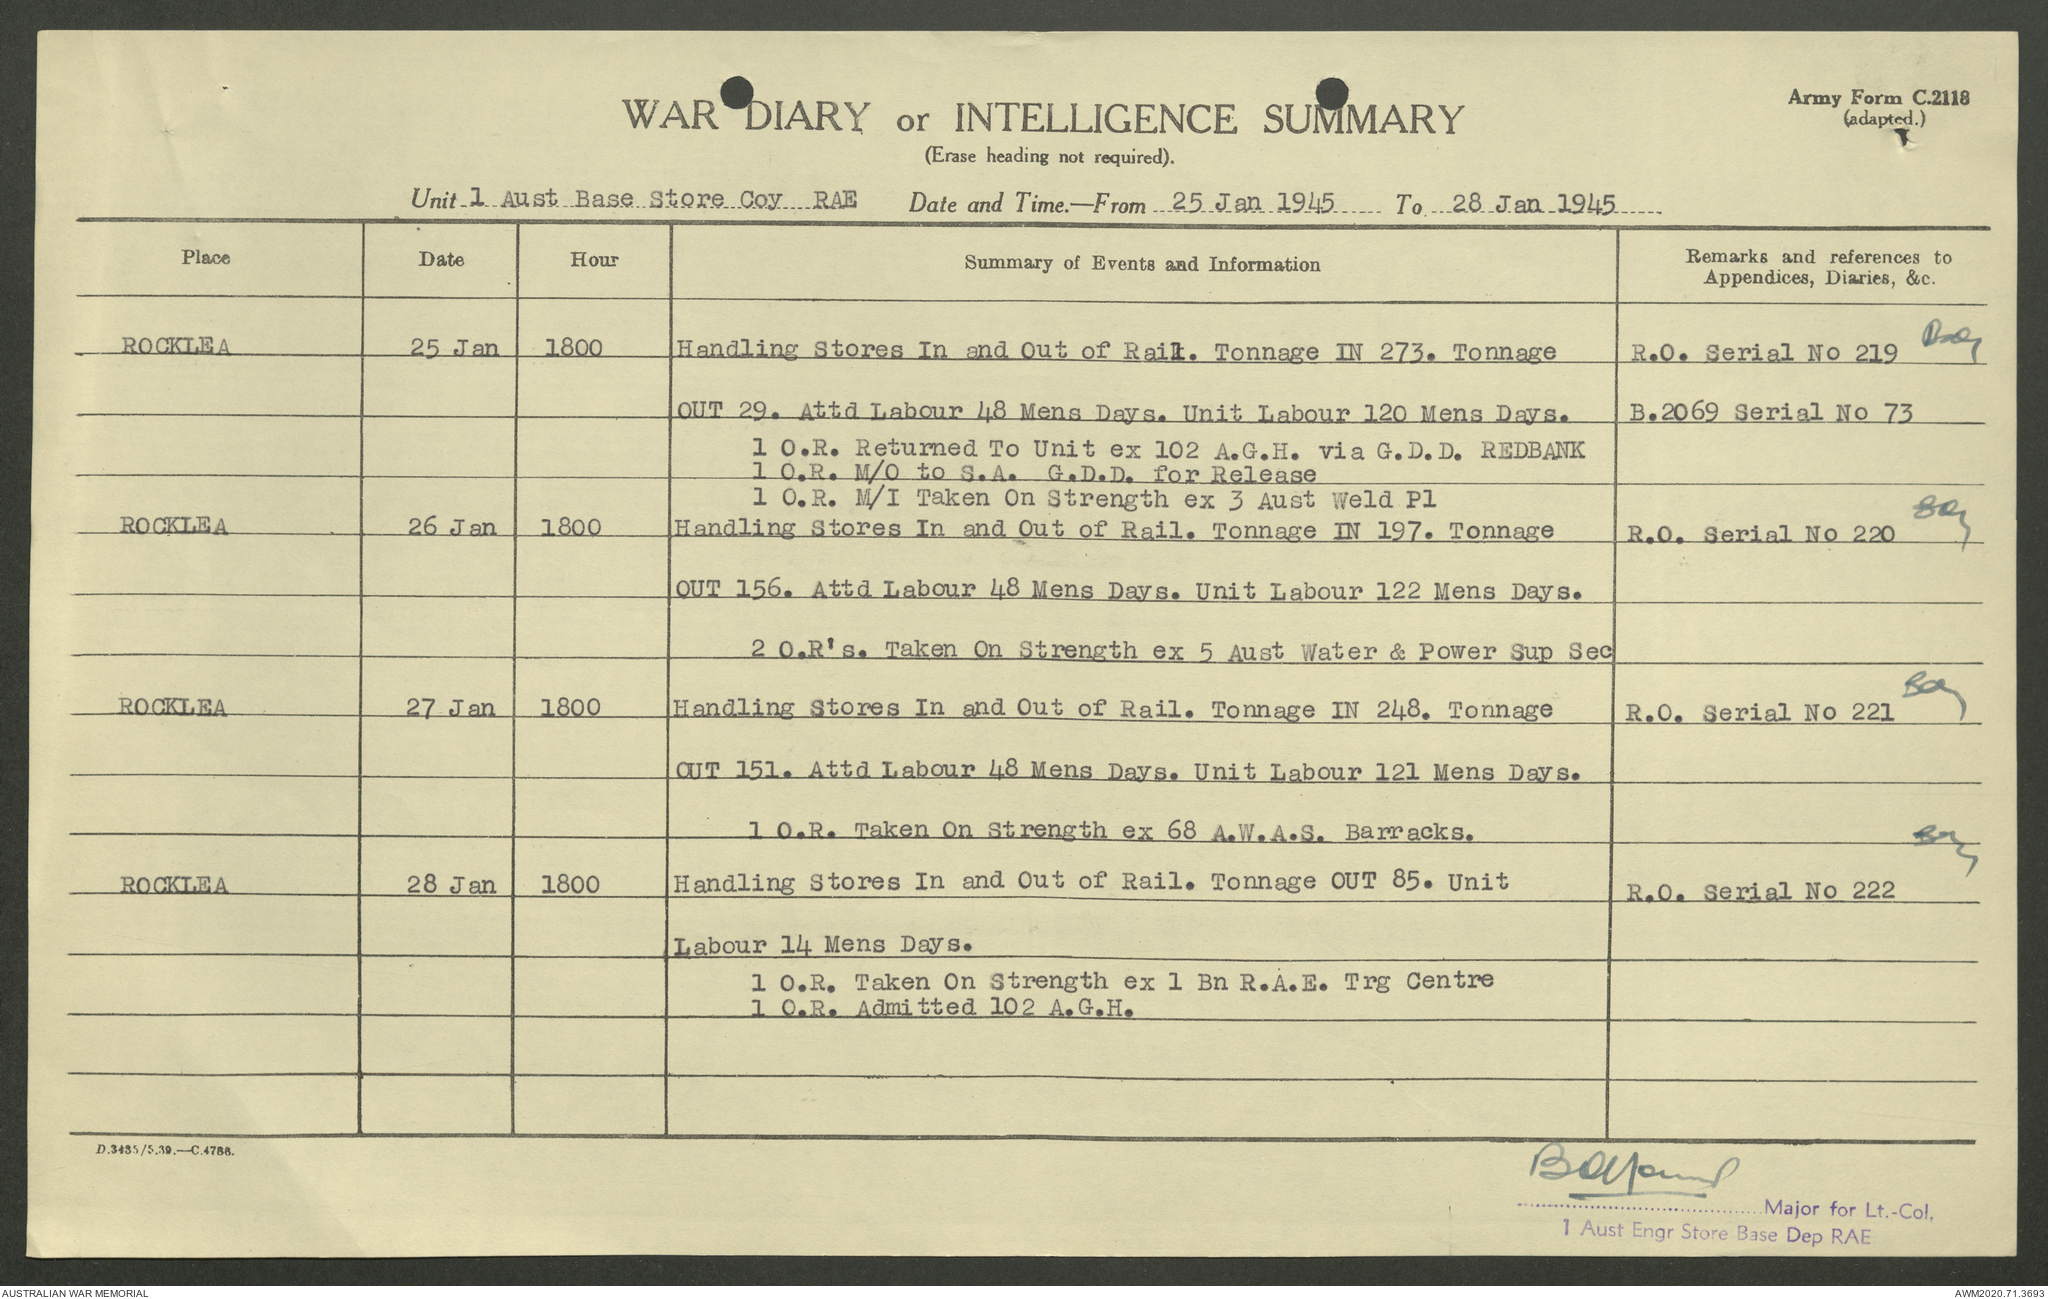 WAR DIARY or INTELLIGENCE SUMMARY
Army Form C.2118
(adapted.)
(Erase heading not required).
Unit 1 Aust Base Store Coy RAE Date and Time.—From 25 Jan 1945 To 28 Jan 1945
Place Date Hour Summary of Events and Information Remarks and references to
Appendices, Diaries, &c.
ROCKLEA 25 Jan 1800 Handling Stores In and Out of Rail. Tonnage IN 273. Tonnage R.O. Serial No 219
OUT 29. Attd Labour 48 Mens Days. Unit Labour 120 Mens Days. B.2069 Serial No 73
1 O.R. Returned To Unit ex 102 A.G.H. via G.D.D. REDBANK
1 O.R. M/O to S.A. G.D.D. for Release
1 O.R. M/I Taken On Strength ex 3 Aust Weld Pl
ROCKLEA 26 Jan 1800 Handling Stores In and Out of Rail. Tonnage IN 197. Tonnage R.O. Serial No 220
OUT 156. Attd Labour 48 Mens Days. Unit Labour 122 Mens Days.
2 O.R's. Taken On Strength ex 5 Aust Water & Power Sup Sec
ROCKLEA 27 Jan 1800 Handling Stores In and Out of Rail. Tonnage IN 248. Tonnage R.O. Serial No 221
OUT 151. Attd Labour 48 Mens Days. Unit Labour 121 Mens Days.
1 O.R. Taken On Strength ex 68 A.W.A.S. Barracks.
ROCKLEA 28 Jan 1800 Handling Stores In and Out of Rail. Tonnage OUT 85. Unit R.O. Serial No 222
Labour 14 Mens Days.
1 O.R. Taken On Strength ex 1 Bn R.A.E. Trg Centre
1 O.R. Admitted 102 A.G.H.
D.3485/5.39.—C.4788.
Major for Lt.-Col,
1 Aust Engr Store Base Dep RAE
AUSTRALIAN WAR MEMORIAL AWM2020.71.3693